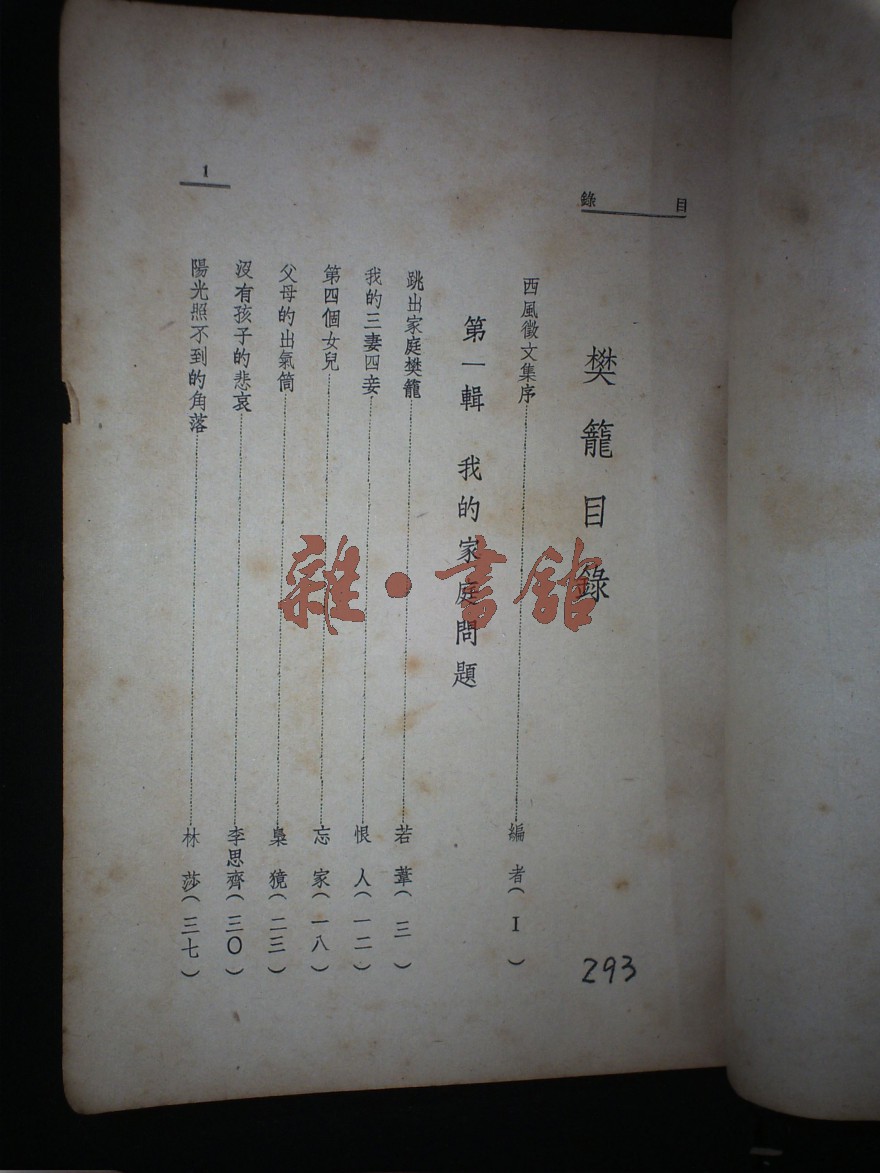 目錄
樊籠目錄
西風徵文集序 編者（I）
第一輯 我的家庭問題
跳出家庭樊籠 若葦（三）
我的三妻四妾 恨人（一二）
第四個女兒 忘家（一八）
父母的出氣筒 梟獍（二三）
沒有孩子的悲哀 李思齊（三〇）
陽光照不到的角落 林莎（三七）
1
293
雜·書館